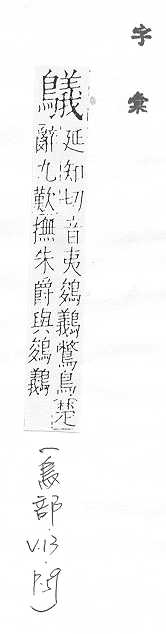 字彙
鸃
延知切音夷鵕鸃鷩鳥楚
辭九歎撫朱爵與鵕鸃
(鳥部.V.13.P.59)